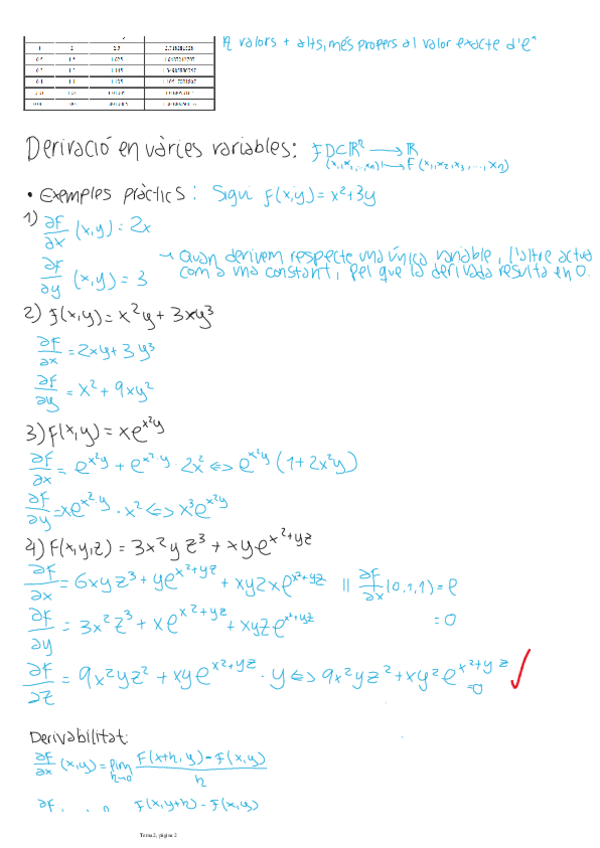 valors + alts, més propers al valor exacte d'eˣ
Derivació en vàries variables: f D⊂ℝ² → ℝ
(x₁,x₂,...,xₙ) → F(x₁,x₂,x₃,...,xₙ)
• Exemples pràctics: Sigui f(x,y) = x²+3y
1) ∂F/∂x (x,y) = 2x
→ Quan derivem respecte una única variable, l'altre actua
com a una constant, pel que la derivada resulta en 0.
∂F/∂y (x,y) = 3
2) f(x,y) = x²y + 3xy³
∂F/∂x = 2xy + 3y³
∂F/∂y = x² + 9xy²
3) f(x,y) = xe^(x²y)
∂F/∂x = e^(x²y) + e^(x²·y) · 2x² <=> e^(x²y) (1+2x²y)
∂F/∂y = xe^(x²·y) · x² <=> x³e^(x²y)
4) F(x,y,z) = 3x²yz³ + xye^(x²+yz)
∂F/∂x = 6xyz³ + ye^(x²+yz) + xy2xe^(x²+yz) || ∂F/∂x (0,1,1) = e
∂F/∂y = 3x²z³ + xe^(x²+yz) + xyze^(x²+yz) = 0
∂F/∂z = 9x²yz² + xye^(x²+yz) · y <=> 9x²yz² + xy²e^(x²+yz) = 0
Derivabilitat:
∂F/∂x (x,y) = lim h→0 (F(x+h,y) - f(x,y))/h
∂F F(x,y+h) - F(x,y)
Tema 2, página 2